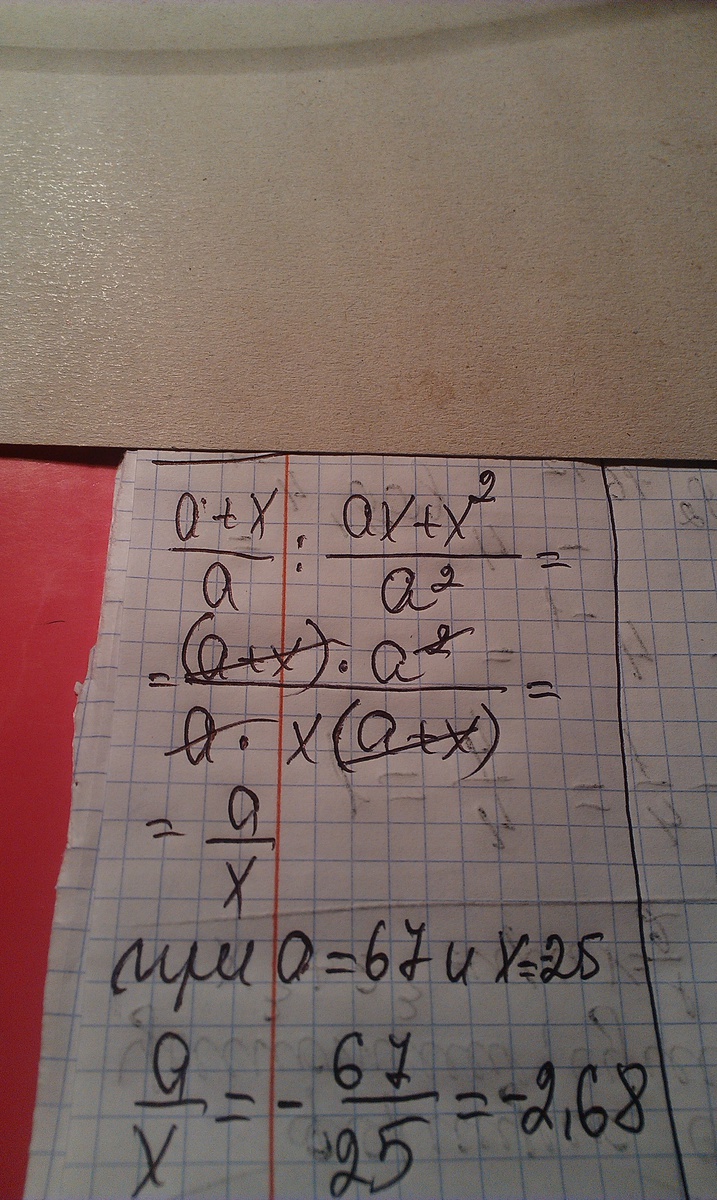 (a+x)/a : (ax+x²)/a² =
= ((a+x)·a²)/(a·x(a+x)) =
= a/x
при a=67 и x=-25
a/x = - 67/25 = -2,68